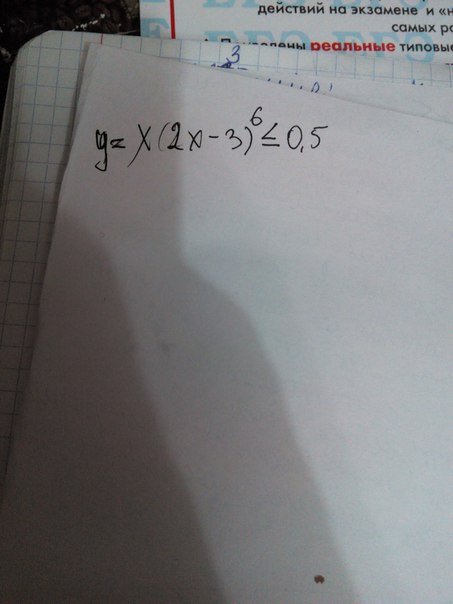 действий на экзамене и «н
самых ра
реальные типовые
3
y= x(2x-3)⁶ ≤ 0,5